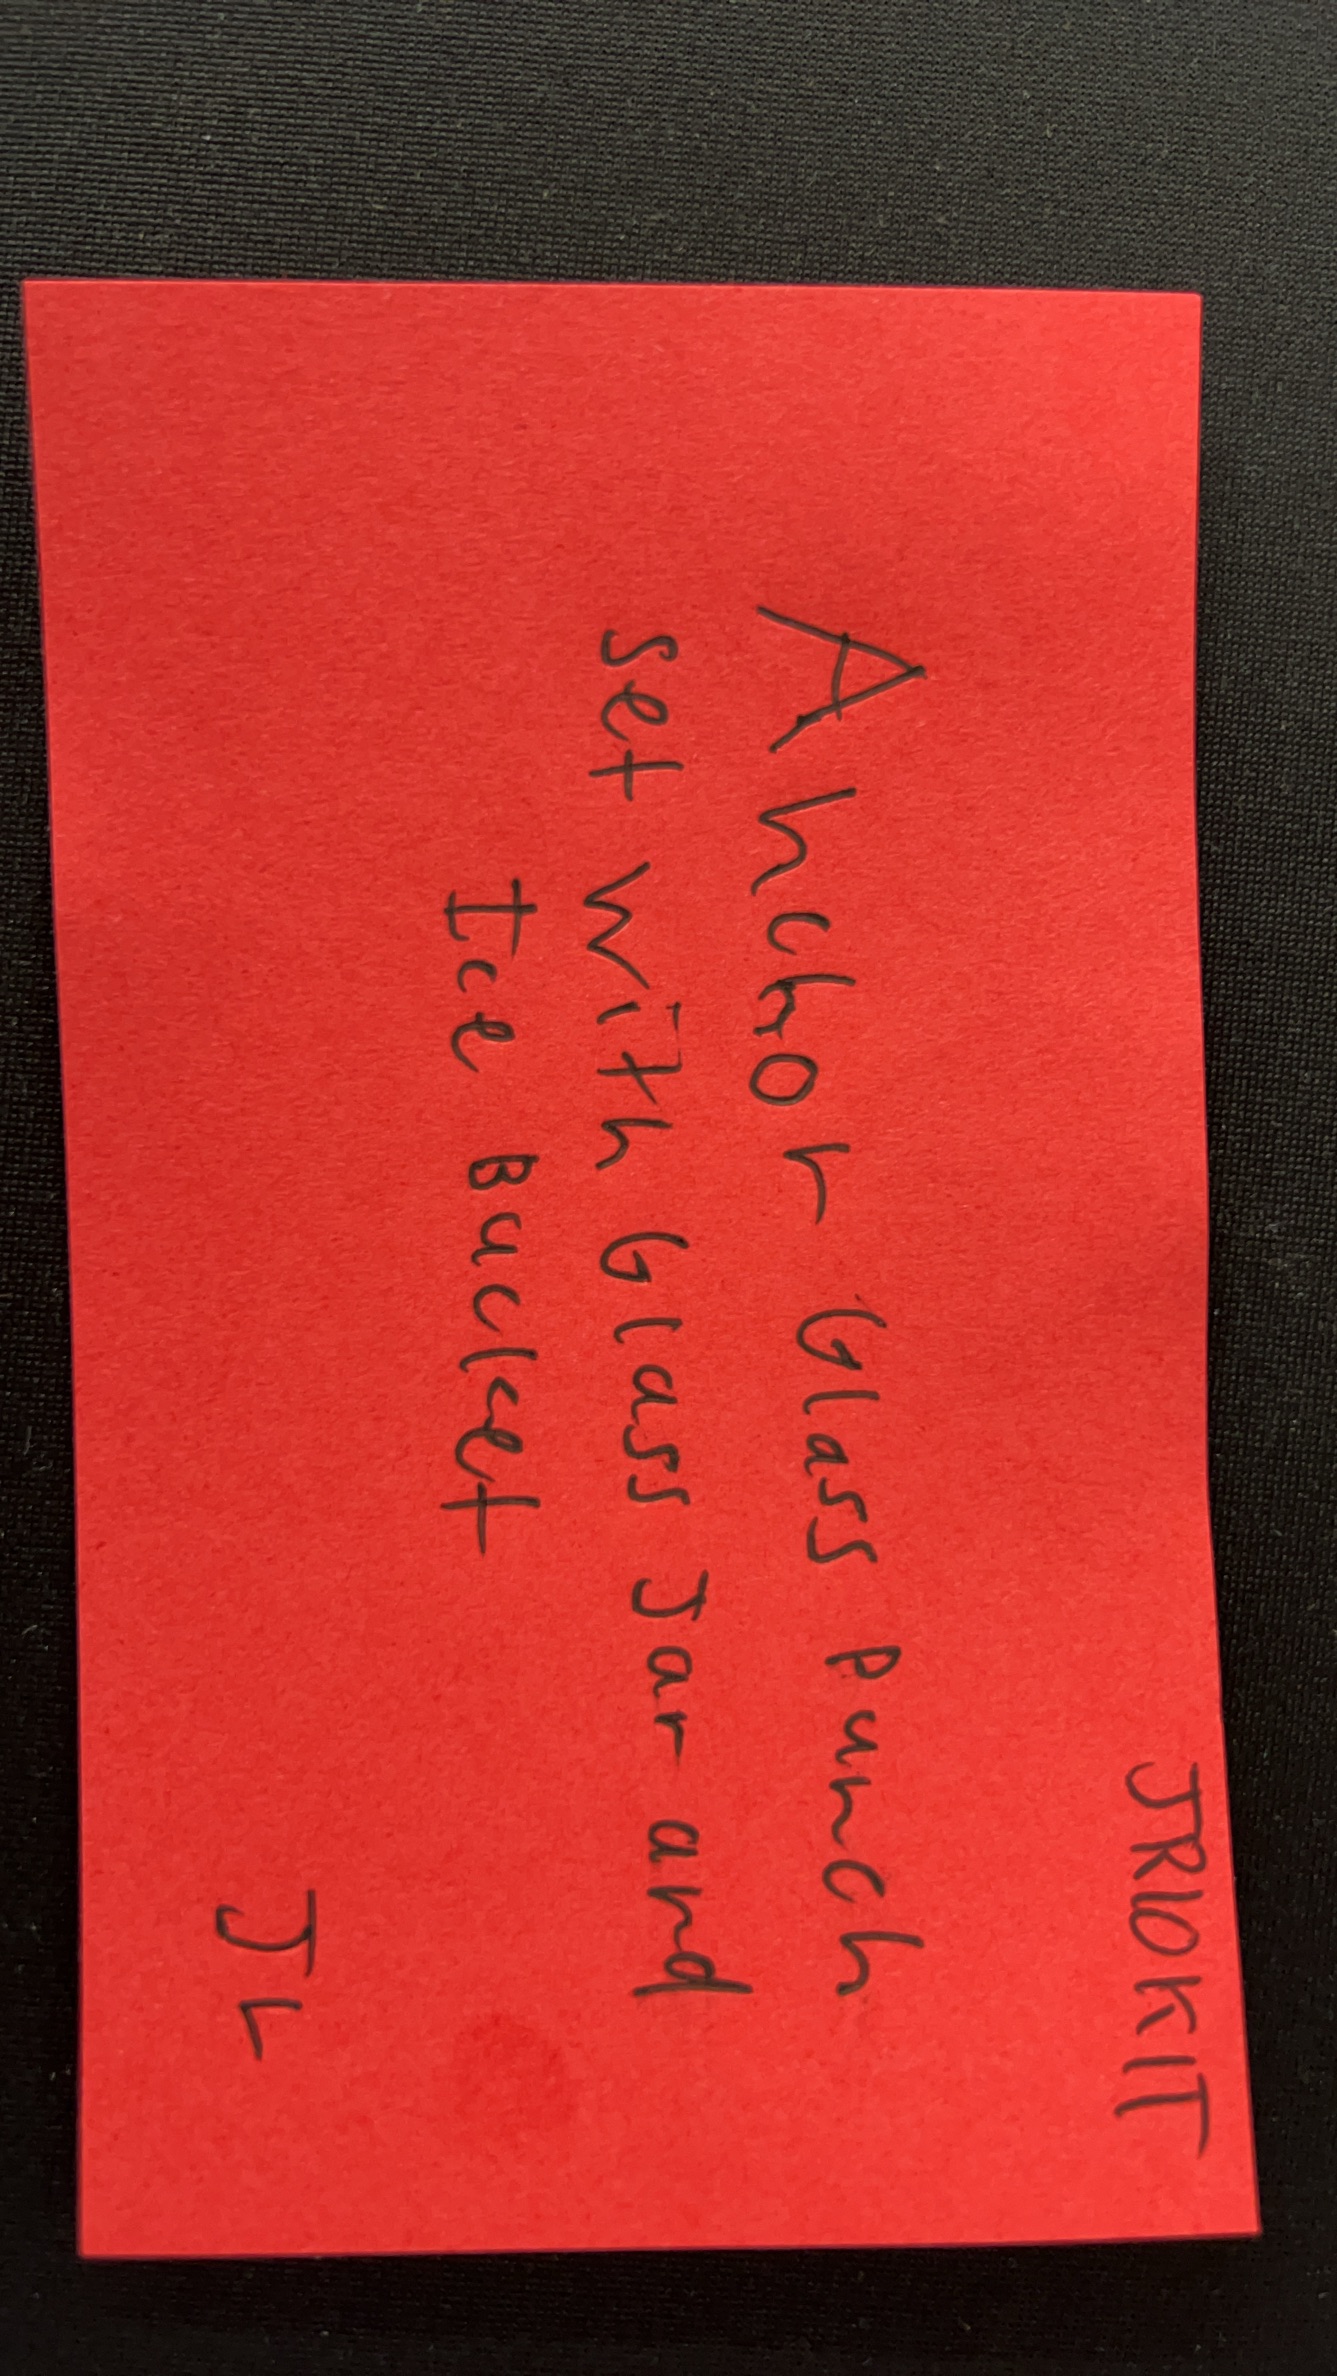 JR10KIT
Anchor Glass Punch
set with Glass Jar and
Ice Bucket
JL